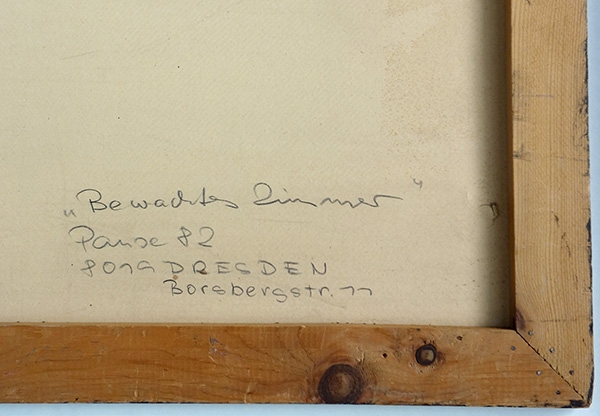 „Bewachtes Zimmer“
Pause 82
8019 DRESDEN
Borsbergstr. 11